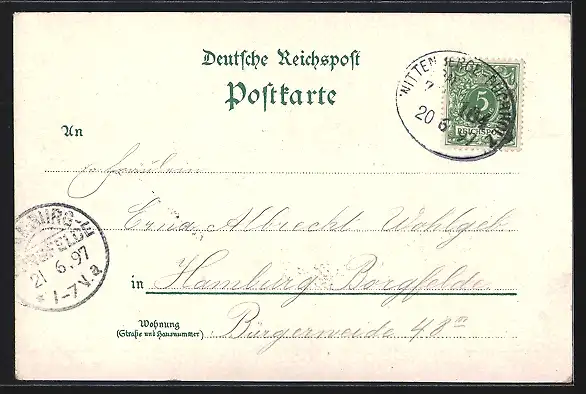 Deutsche Reichspost
Postkarte
WITTENBERGE-
20 6 97
5
REICHSPOST
An
Fräulein
Erna Albrecht Wohlgeb
in Hamburg Borgfelde
Wohnung
(Straße und Hausnummer)
Bürgerweide 48
BURG-
FELDE
21 6.97
* 1-7 V.a